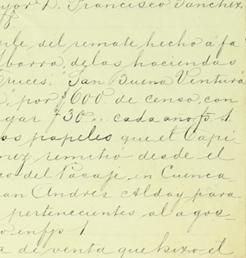 yor D. Francisco Sanchez,
ple del remate hecho á fa
ibarra, de las haciendas
ruces, "San Buena Ventura
", por $600. de censo, con
gar $30... cada año, fs. 1
os papeles que el Capi
nez remitió desde el
eo del Pacaje, en Cuenca
uan Andrés Alday para
pertenecientes al agos
o en fjs 1
a de venta que hizo el